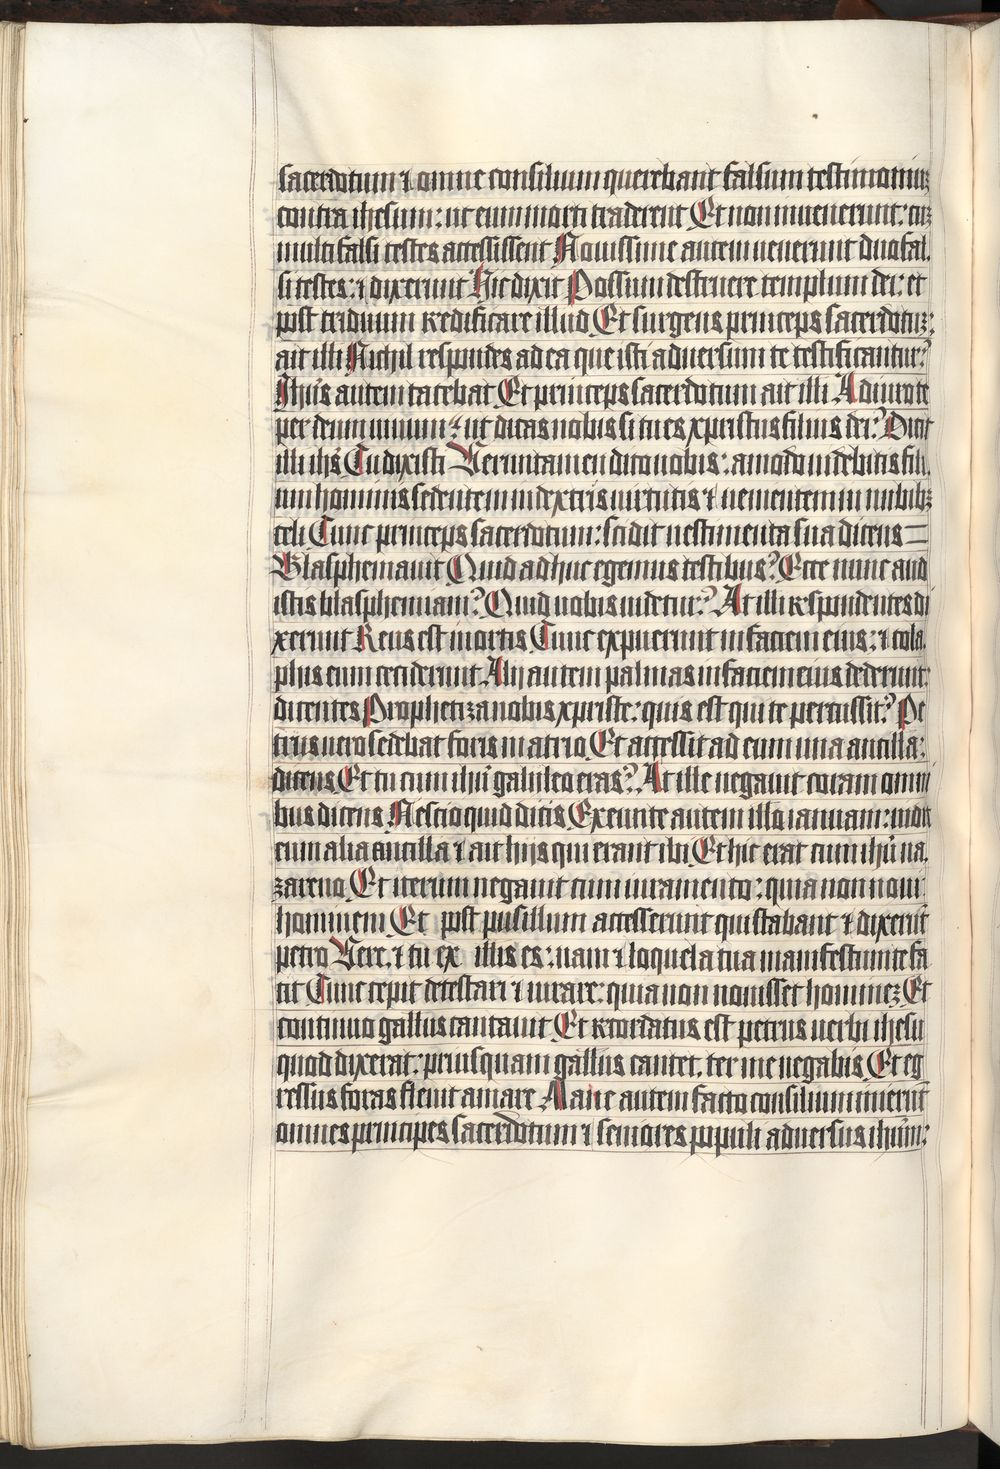 sacerdotum ⁊ omne consilium querebant falsum testimoniuꝫ
contra ihesum: ut eum morti traderent Et non inuenerunt: cuꝫ
multi falsi testes accessissent Nouissime autem uenerunt duo fal.
si testes: ⁊ dixerunt Hic dixit Possum destruere templum dei: et
post triduum reedificare illud Et surgens princeps sacerdotuꝫ:
ait illi Nichil respondes ad ea que isti aduersum te testificantur?
Ihūs autem tacebat Et princeps sacerdotum ait illi Adiuro te
per deum uiuum: ut dicas nobis si tu es xpristus filius dei? Dicit
illi ihs̄ Tu dixisti Veruntamen dico uobis: amodo uidebitis fili.
um hominis sedentem in dextris uirtutis ⁊ uenientem in nubibꝫ
celi Tunc princeps sacerdotum: scidit uestimenta sua dicens
Blasphemauit Quid adhuc egemus testibus? Ecce nunc aud
istis blasphemiam? Quid uobis uidetur? At illi respondentes di
xerunt Reus est mortis Tunc expuerunt in faciem eius: ⁊ cola.
phis eum ceciderunt Alij autem palmas in faciem eius dederunt:
dicentes Prophetiza nobis xpriste: quis est qui te percussit? Pe
trus uero sedebat foris in atrio Et accessit ad eum una ancilla:
dicens Et tu cum ihū galileo eras? At ille negauit coram omni
bus dicens Nescio quid dicis Exeunte autem illo ianuam: uidit
eum alia ancilla ⁊ ait hijs qui erant ibi Et hic erat cum ihū na.
zareno Et iterum negauit cum iuramento: quia non noui
hominem Et post pusillum accesserunt qui stabant ⁊ dixerūt
petro Vere. ⁊ tu ex illis es: nam ⁊ loquela tua manifestum te fa
cit Tunc cepit detestari ⁊ iurare: quia non nouisset homineꝫ Et
continuo gallus cantauit Et recordatus est petrus uerbi ihesu
quod dixerat: priusquam gallus cantet. ter me negabis Et eg
ressus foras fleuit amare Mane autem facto consilium inierūt
omnes principes sacerdotum ⁊ seniores populi aduersus ihūm: